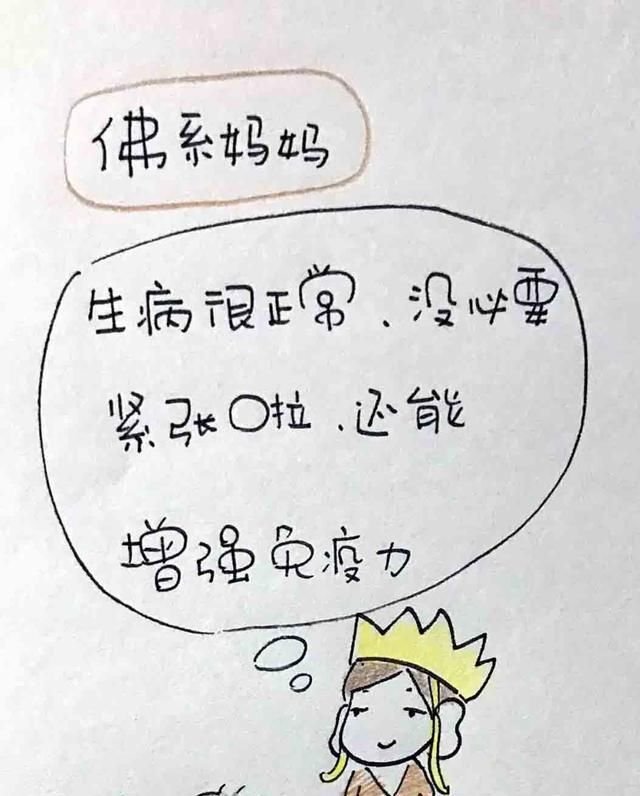 佛系妈妈
生病很正常、没必要
紧张啦、还能
增强免疫力